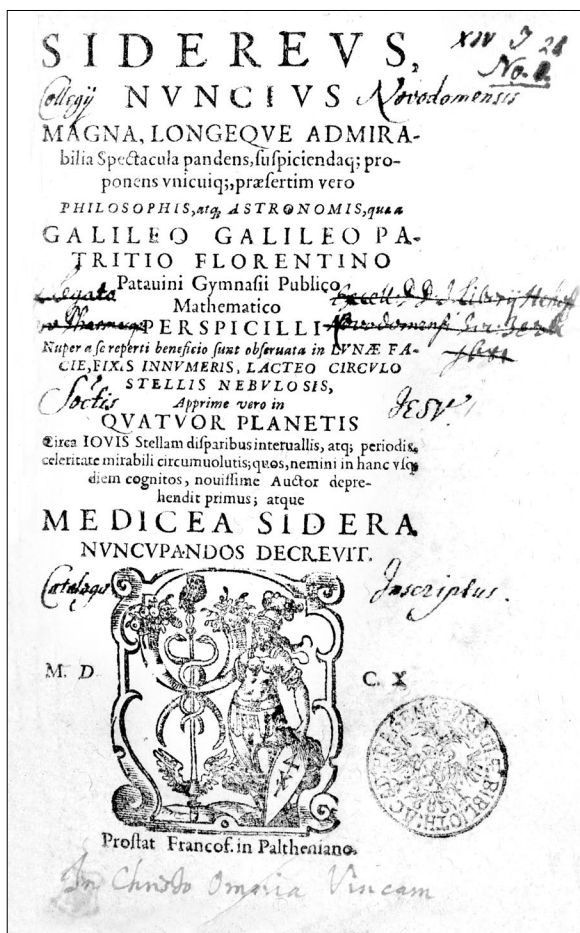 SIDEREVS,
XIV J 28
No. 1.
Collegij NVNCIVS Novodomensis
MAGNA, LONGEQVE ADMIRA-
bilia Spectacula pandens, suspiciendaq; pro-
ponens vnicuiq;, præsertim vero
PHILOSOPHIS, atq; ASTRONOMIS, quæ à
GALILEO GALILEO PA-
TRITIO FLORENTINO
Patauini Gymnasii Publico
Mathematico
PERSPICILLI
Nuper à se reperti beneficio sunt obseruata in LVNÆ FA-
CIE, FIXIS INNVMERIS, LACTEO CIRCVLO
STELLIS NEBVLOSIS,
Soctis Apprime vero in JESV.
QVATVOR PLANETIS
Circa IOVIS Stellam disparibus interuallis, atq; periodis,
celeritate mirabili circumuolutis; quos, nemini in hanc vsq;
diem cognitos, nouissime Auctor depre-
hendit primus; atque
MEDICEA SIDERA
NVNCVPANDOS DECREVIT.
Catalogo Inscriptus.
M. D C. X
Prostat Francof. in Paltheniano.
In Christo Omnia Vincam